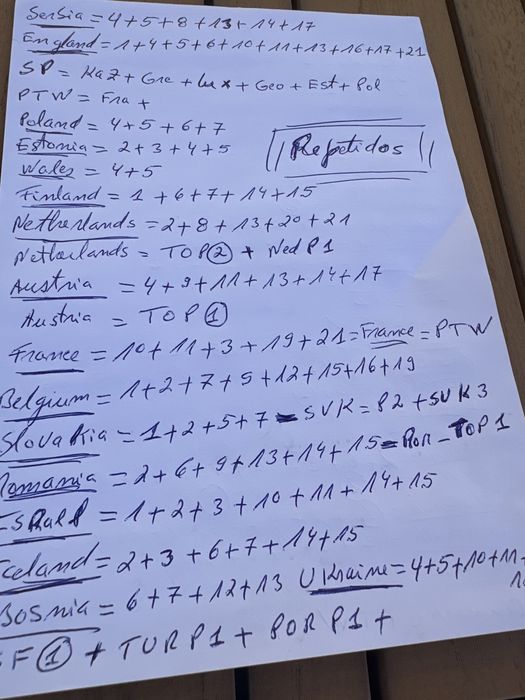 Serbia = 4+5+8+13+14+17
England = 1+4+5+6+10+11+13+16+17+21
SP = Kaz + Gre + Lux + Geo + Est + Pol
PTW = Fra +
Poland = 4+5+6+7
Estonia = 2+3+4+5
|| Repetidos ||
Wales = 4+5
Finland = 1+6+7+14+15
Netherlands = 2+8+13+20+21
Netherlands = TOP ② + Ned P1
Austria = 4+9+11+13+14+17
Austria = TOP ①
France = 10+11+3+19+21 = France = PTW
Belgium = 1+2+7+9+12+15+16+19
Slovakia = 1+2+5+7 = SVK = P2 + SVK 3
Romania = 2+6+9+13+14+15 = ROR - TOP 1
= 1+2+3+10+11+14+15
Iceland = 2+3+6+7+14+15
Bosnia = 6+7+12+13 Ukraine = 4+5+10+11+
F ① + TUR P1 + POR P1 +